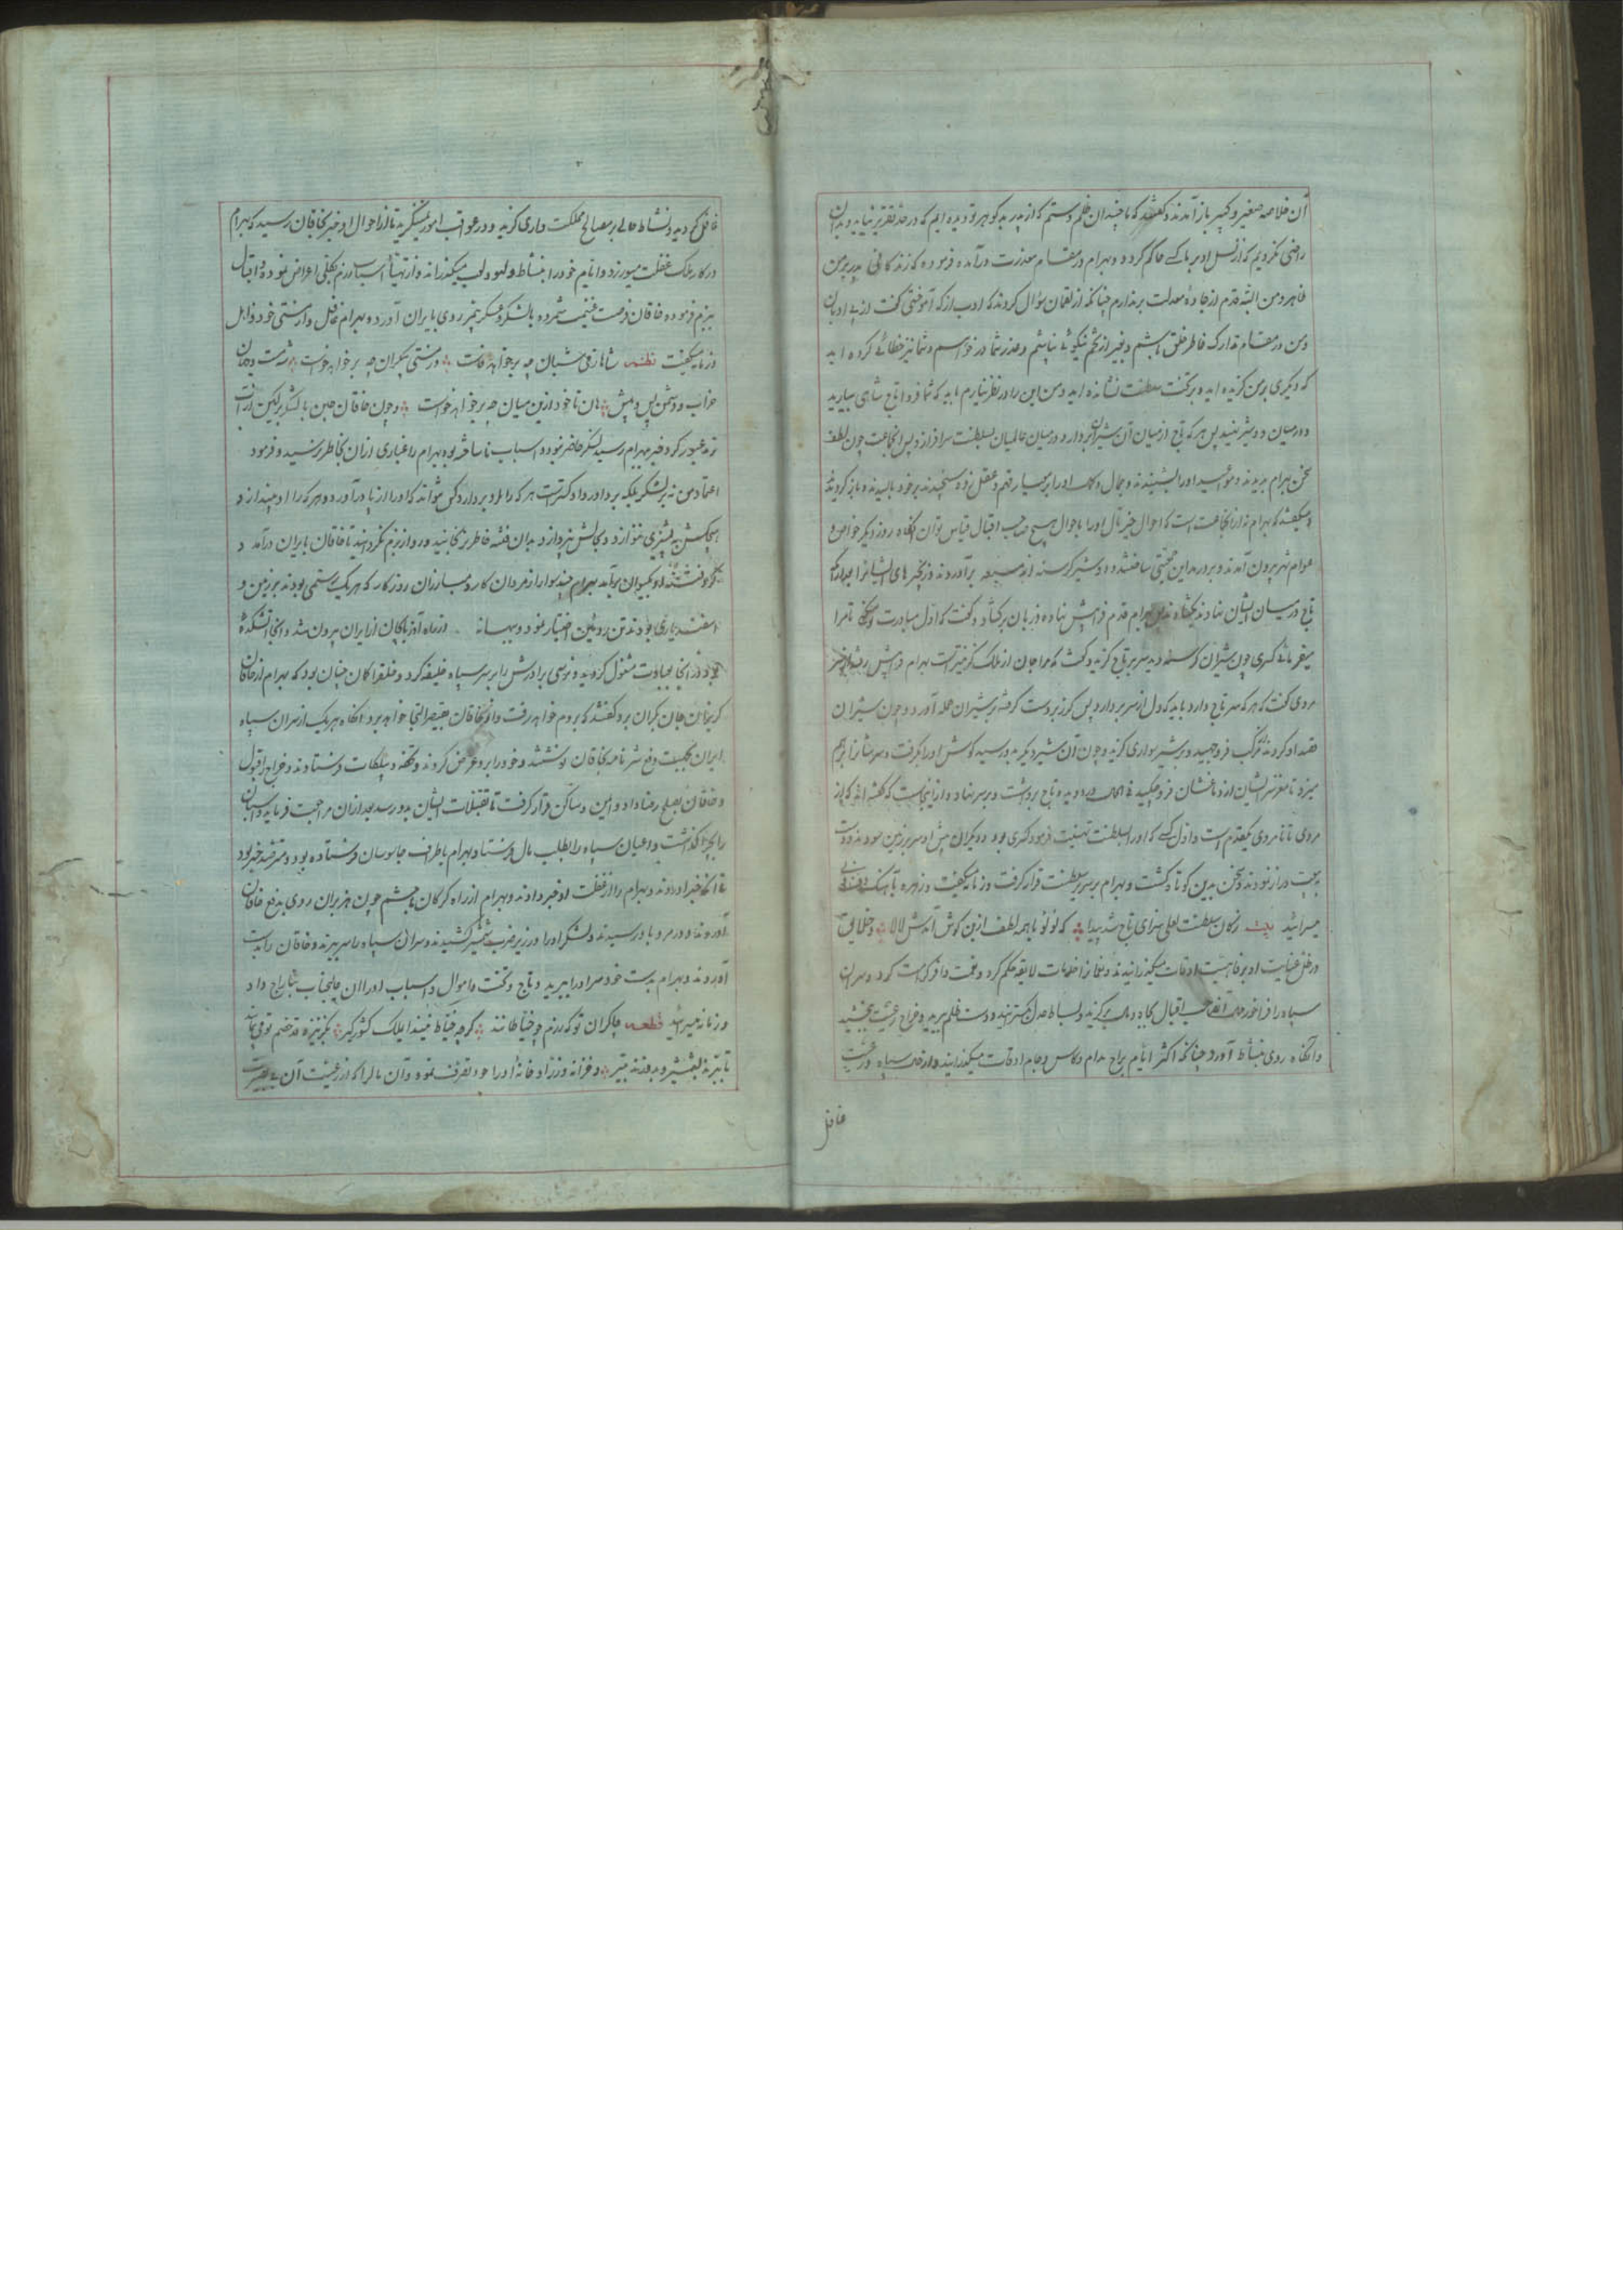 آن خلاصه صغیر و کبیر باز آمدند و گفتند که ما چندان ظلم و ستم که از پدر بدگوهر تو دیده ایم که در حد تقریر نیاید و بدان
راضی نکردیم که از نسل او بر ما کسی حاکم گردد و بهرام در مقام معذرت درآمده فرموده که زندگانی پدر بر من
ظاهر و من البته قدم از جاده معدلت برندارم چنانکه از لقمان سؤال کردند که ادب از که آموختی گفت از بی ادبان
و من در مقام تدارک خاطر خلق باشم و بغیر از تخم نیکوئی نپاشم و عذر شما درخواستم و شما نیز خطائی کرده اید
که دیگری بر من گزیده اید و بر تخت سلطنت نشانده اید و من این را در نظر نیارم باید که شما فردا تاج شاهی بیارید
و در میان دو شیر نهید پس هر که تاج از میان آن شیران بردارد در میان عالمیان بسلطنت سرافرازد پس آن جماعت چون لطف
سخن بهرام بدیدند و مواسید او را بشنیدند و جمال و کمال او را بمعیار فهم و عقل خود سنجیدند بر خود بالیدند و باز گردیدند
و میگفتند که بهرام نه از آن جماعت است که احوال خیر مآل او را باحوال هیچ صاحب اقبال قیاس توان آنگاه روز دیگر خواص و
عوام شهر بیرون آمدند و بر در مداین تختی ساختند و دو شیر گرسنه برآوردند و زنجیرهای ایشانرا
تاج در میان ایشان نهادند بهرام قدم فرا پیش نهاده زبان برگشاد و گفت که اول مبادرت تو میکنی تا مرا
میفرمائی کسری چون شیران گرسنه دید سر بر تاج گزید و گفت که مرا جان از ملک گزیر است بهرام فرا پیش رفته
مردی گفت که هر که سر تاج دارد باید که دل از سر بردارد پس گرز بر دست گرفته بر شیران حمله آورد و چون شیران
قصد او کردند گرگ فرو جهید و بر شیر سواری گزید و چون آن شیر دیگر بدو رسید گوش او را بگرفت و سر ایشانرا بر هم
میزد تا مغز سر ایشان از دماغشان فرو چکید فی الحال دوید و تاج برداشت و بر سر نهاد و از اینجاست که گفته اند که از
مردی تا نامردی یک قدم است و اول کسی که او را بسلطنت تهنیت فرمود کسری بود و دیگران پیش او سر بر زمین سودند و دست
بیعت دراز نمودند و سخن بدین کوتاه گشت و بهرام بر سریر سلطنت قرار گرفت و زمانه میگفت و زهره بآهنگ
میسرائید بیت ز کان سلطنت لعلی سزای تاج شد پیدا که لؤلؤ با همه لطف از بن گوش آمدش لالا و خلایق
در ظل عنایت او بر فاهیت اوقات میگذرانیدند و نعمان را خلعات لایقه حکم کرد و نعمت وافر کرامت کرد و سران
سپاه را فراخور حال هر صاحب اقبال کلاه دولت برگزید و بساط عدل بگسترانید و دست ظلم ببرید و خراج رعیت ببخشید
و آنگاه روی بنشاط آورد چنانکه اکثر ایام براح مدام و کاس و جام اوقات میگذرانید و از حال سپاه و رعیت
غافل
غافل گردیده و نشاط حالی بر مصالح مملکت داری گزید و در عواقب امور نمینگرید تا از احوال او خبر بخاقان رسید که بهرام
در کار ملک غفلت میورزد و ایام خود را بنشاط و لهو و لعب میگذراند و از تهیأ اسباب رزم بکلی اعراض نموده و اقبال
ببزم فرموده خاقان فرصت غنیمت شمرده با لشکر و عسکر بیمر روی بایران آورده بهرام غافل و از مستی خود ذاهل
و زمانه میگفت نظم شاها ز می شبان چه برخواهد خاست وز مستی بیکران چه برخواهد خواست شه مست و جهان
خراب و دشمن پس و پیش هان تا خود ازین میان چه برخواهد خواست و چون خاقان چین با لشکر پر کین از آب
ترمد عبور کرد و خبر بهرام رسید لشکر حاضر نبود و اسباب ناساخته بود بهرام را غباری از آن بخاطر نرسید و فرمود
اعتماد من نه بر لشکر بلکه بر داور دادگر است هر که را او بردارد کس نتواند که او را از پا درآورد و هر که را او بیندازد
هیچکس به پشیزی ننوازد و بحالش نپردازد و بدان فتنه خاطر نرنجانید و رو از بزم نگردانید تا خاقان بایران درآمد و
گرد فتنه او بکیوان برآمد بهرام چند سوار از مردان کار و مبارزان روزگار که هر یک رستمی بودند بر زمین و
اسفندیاری بودند تن روئین اختیار نمود و ببهانه از راه آذربایگان از ایران بیرون شد و آنجا آتشکده
بود در آنجا بعبادت مشغول گردید و نرسی برادرش را بر سر سپاه خلیفه کرد و خلق را گمان چنان بود که بهرام از خاقان
گریزان جان بکران برد گفتند که بروم خواهد رفت و از خاقان بقیصر التجا خواهد برد آنگاه هر یک از سران سپاه
ایران بجهت دفع شر نامه بخاقان نوشتند و خود را برو عرض کردند و تحفه و پیشکشات فرستادند و خراج را قبول
و خاقان بصلح رضا داد و امین و ساکن قرار گرفت تا تقبلات ایشان بدو رسد بعد از آن مراجعت فرماید و اسبان
را بچرا گذاشت و اعیان سپاه را بطلب مال فرستاد و بهرام باطراف جاسوسان فرستاده بود و مترصد خبر بود
تا آنکه خبر آوردند و بهرام را از غفلت او خبر دادند و بهرام از راه گرگان با حشم چون هزبران روی بدفع خاقان
آوردند و در مرو با و رسیدند و لشکر او را در زیر ضرب شمشیر کشیدند و سران سپاه را سر بریدند و خاقان را بدست
آوردند و بهرام بدست خود سر او را ببرید و تاج و تخت و اموال و اسباب او را از آن جناب بتاراج داد
و زمانه میسرائید قطعه چاکران تو که رزم چو خیاطانند گرچه خیاط نیند ای ملک کشورگیر بگز نیزه قد خصم تو می پیمایند
تا ببرند بشمشیر و بدوزند بتیر و خزانه و زرادخانه او را خود تصرف نمود و آن مال را که از رعیت آن